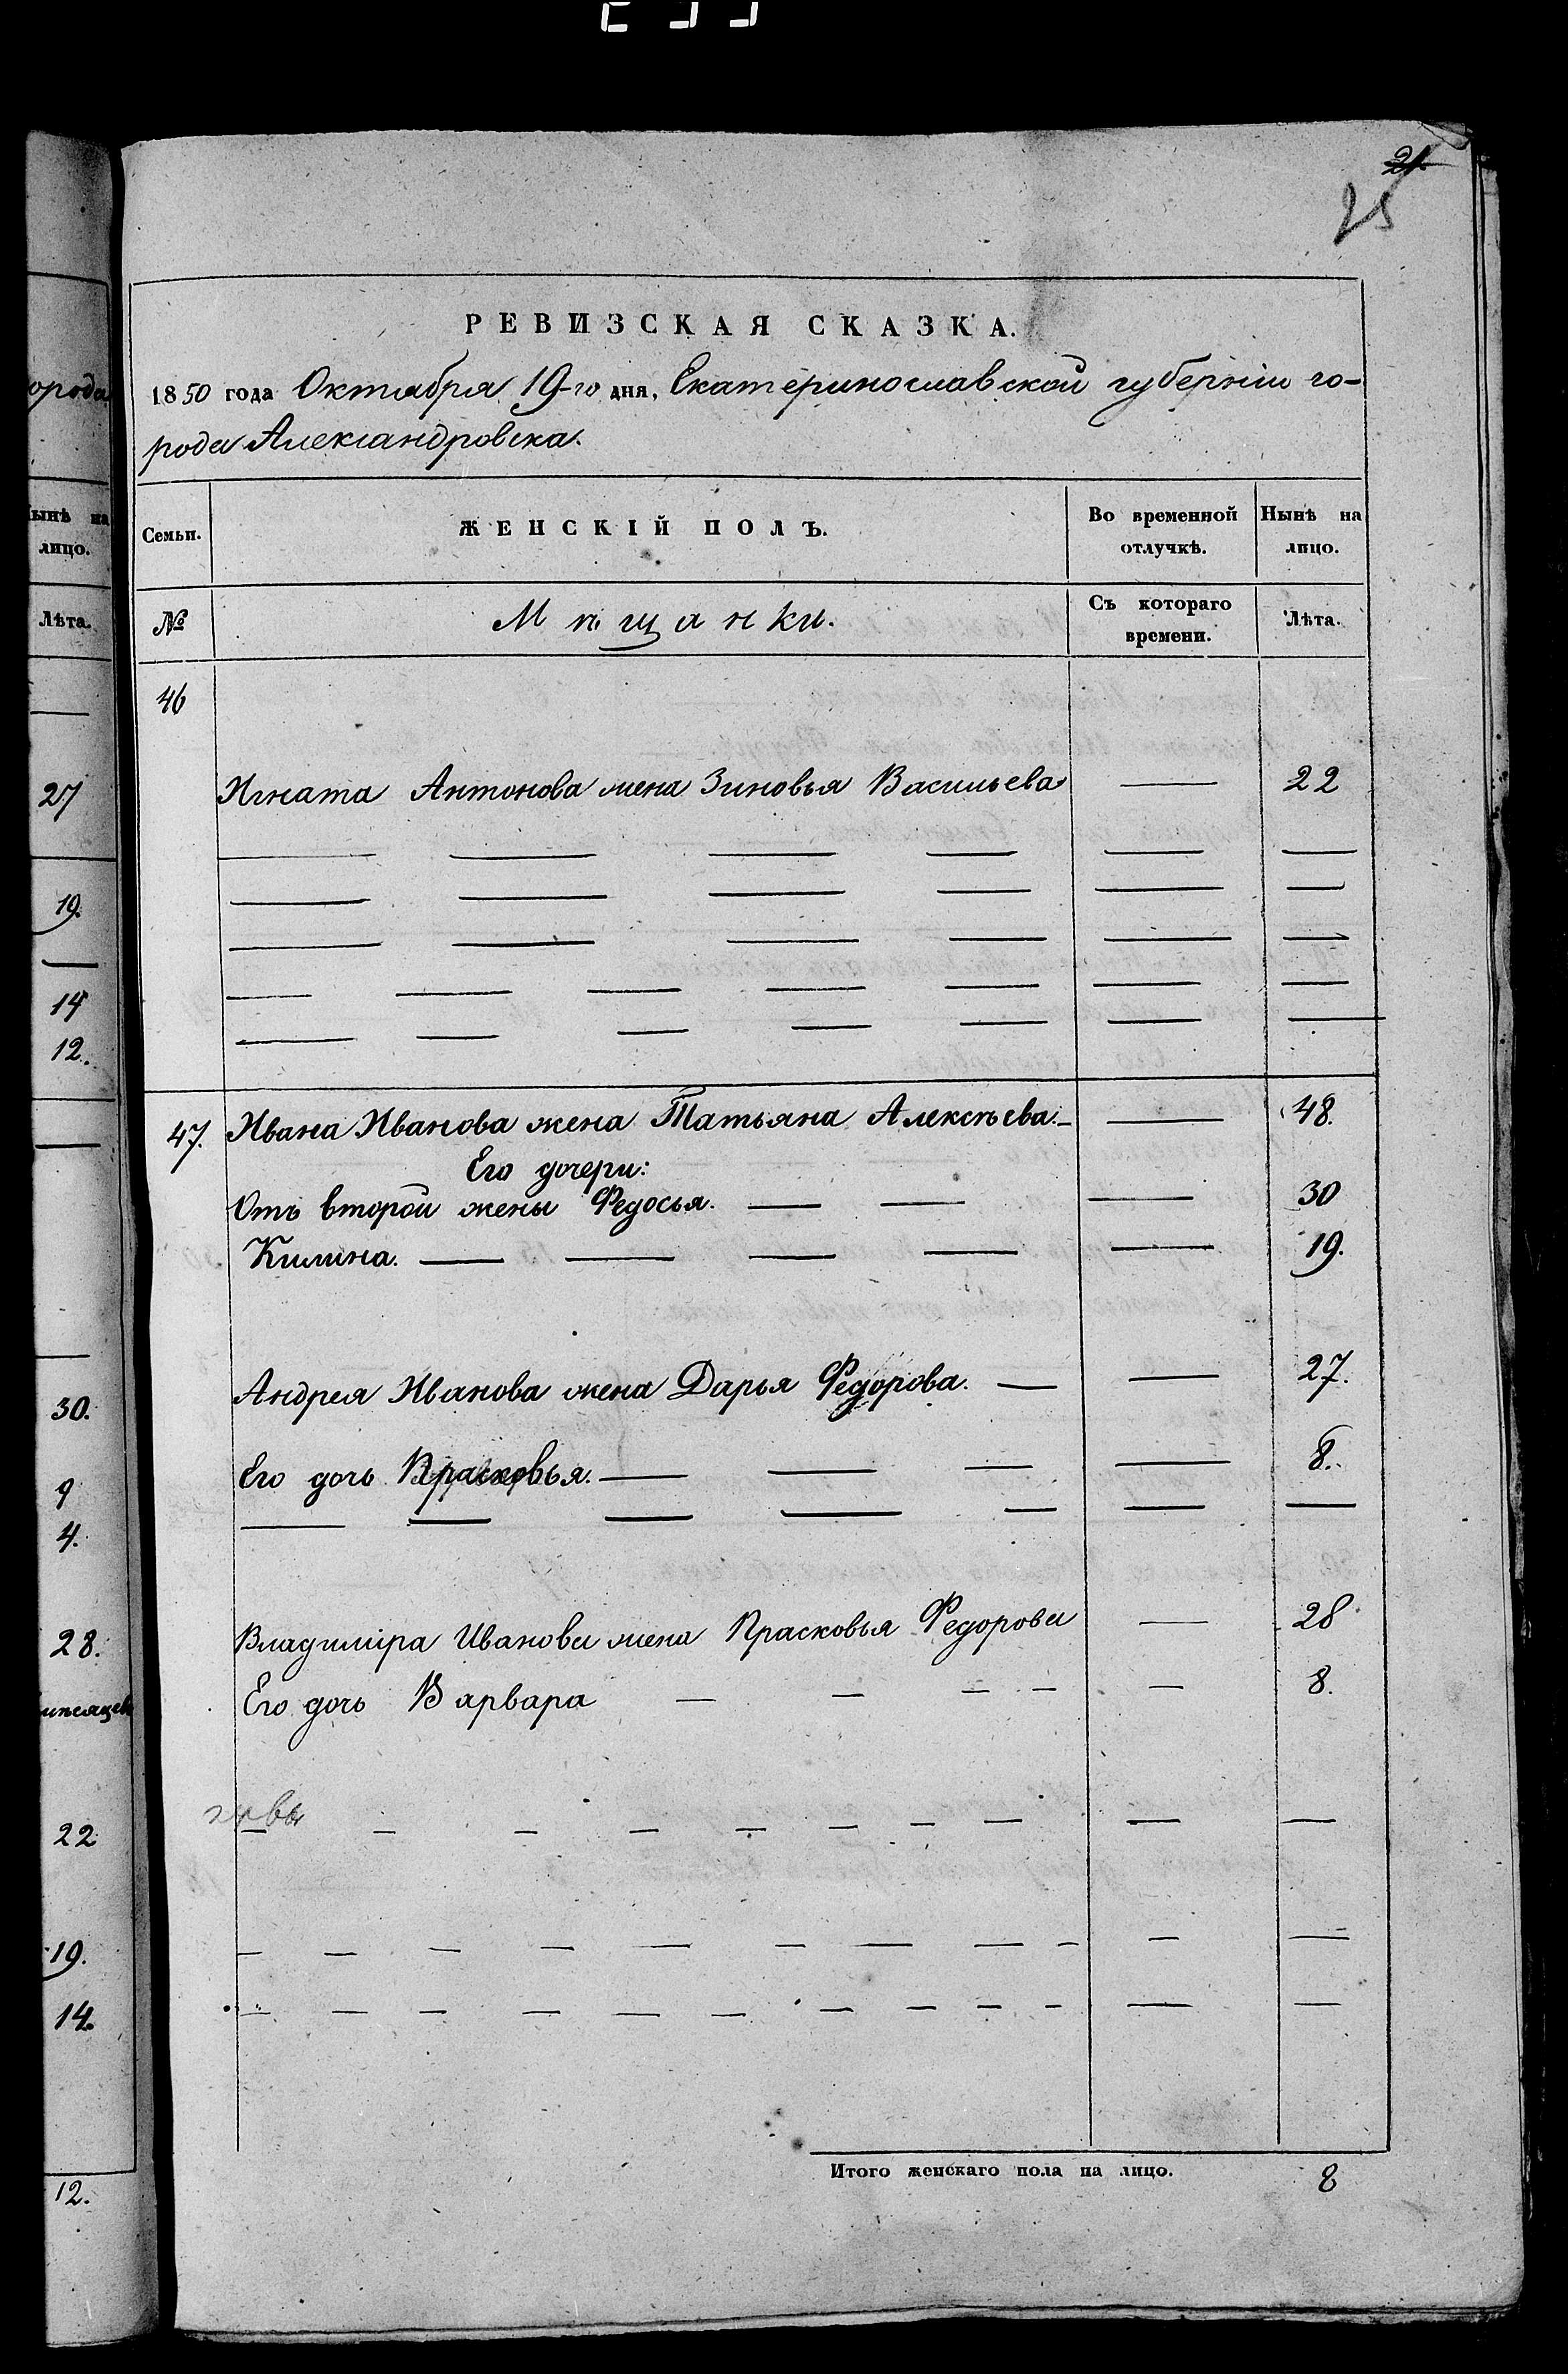 21.
25
РЕВИЗСКАЯ СКАЗКА.
1850 года Октября 19-го дня, Екатеринославской губерніи го-
рода Александровска.
Семьи.
ЖЕНСКІЙ ПОЛЪ.
Во временной отлучкѣ.
Нынѣ на лицо.
№
Мѣщанки.
Съ котораго времени.
Лѣта.
46
Игната Антонова жена Зиновья Васильева — 22
47. Ивана Иванова жена Татьяна Алексѣева. — 48.
Его дочери:
Отъ второй жены Федосья. — — — 30
Килина. — — — — — 19.
Андрея Иванова жена Дарья Федорова. — — 27.
Его дочь Прасковья. — — — — 8.
Владиміра Иванова жена Прасковья Федорова — 28
Его дочь Варвара — — — — — 8.
Итого женскаго пола на лицо. 8
орода
Нынѣ на
лицо.
Лѣта.
27
19.
14
12.
30.
9
4.
28.
мѣсяцев
22
19.
14.
12.